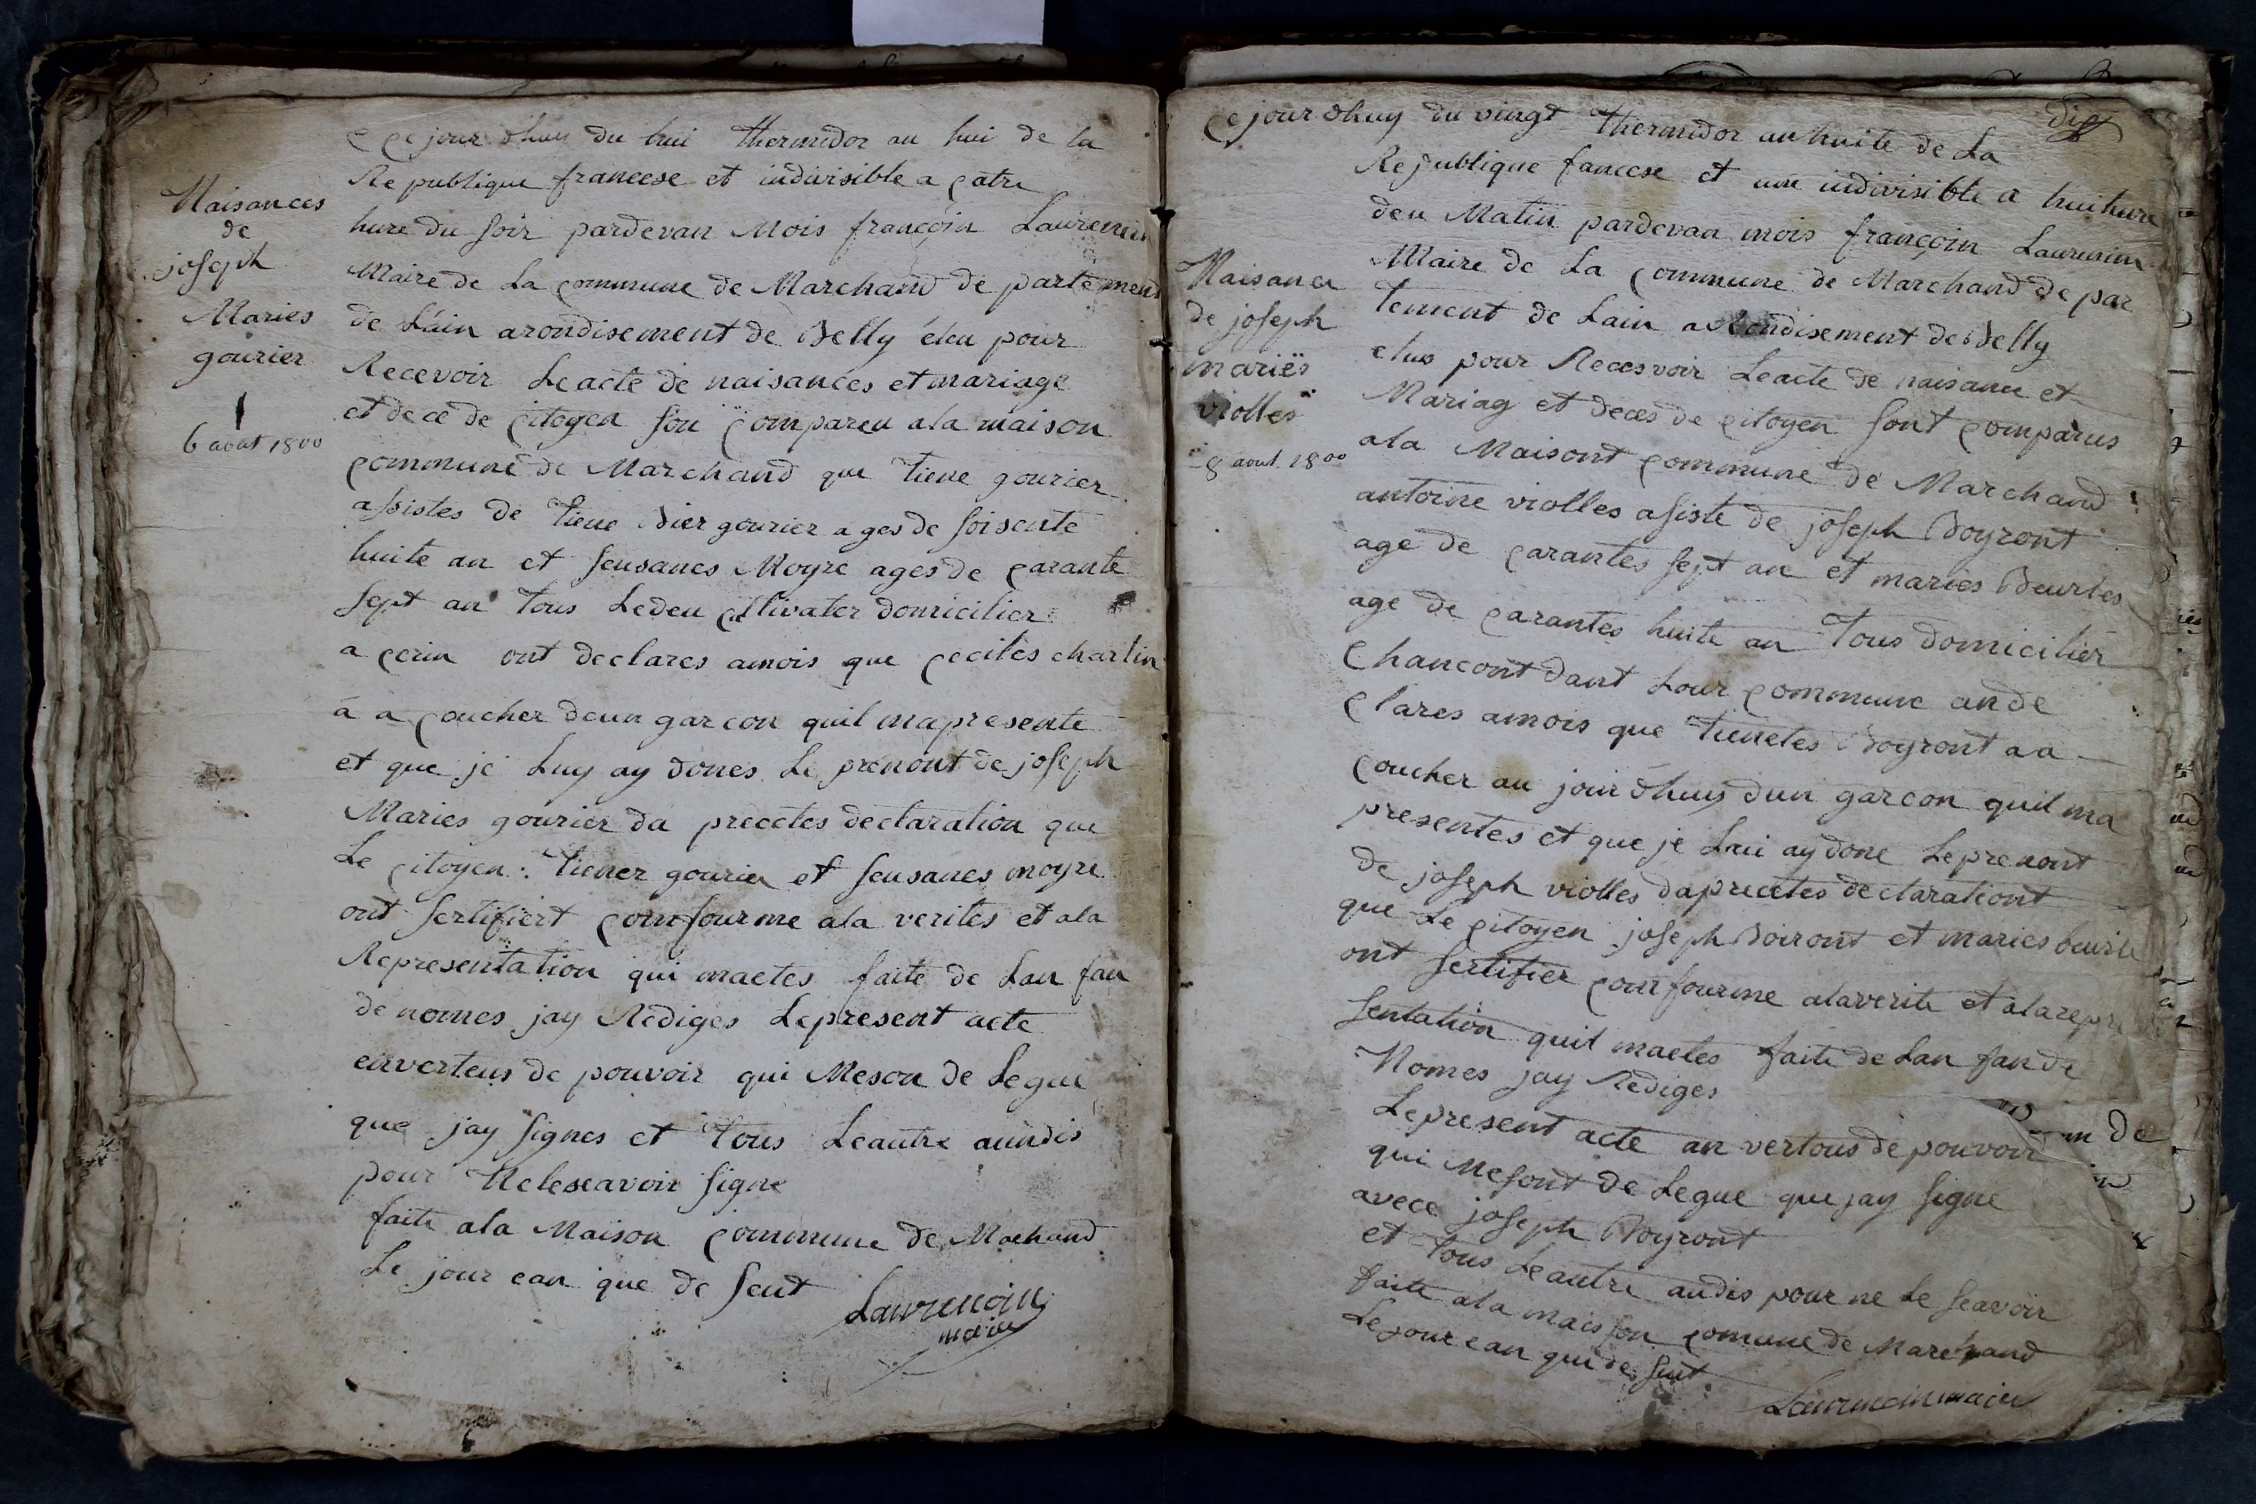 Naisances
de
joseph
Maries
gourier
6 aout 1800
Ce jour dhuy du hui thermidor an hui de la
Republique francese et indivisible a catre
hure du soir pardevan Mois françoin Laurencin
Maire de La commune de Marchand de partement
de Lain arondisement de Belly éleu pour
Recevoir Leacte de naisances et mariage
et dece de citoyen son compareu ala maison
commune de Marchand que tiene gourier
assistes de tiene Dier gourier ages de soisente
huite an et seusanes Moyre ages de carante
sept an tous Ledeu cultivater domicilier
a cerin ont declares amois que ceciles charlin
a a coucher deun garcon quil mapresente
et que je Luy ay dones Le prenont de joseph
Maries gourier da precetes declaration que
Le citoyen tiener gourier et seusanes moyre
ont sertifiert comfourme ala verites et ala
Representation qui maetes faite de Lan fan
de nomes jay Rediges Lepresent acte
enverteus de pouvoir qui Meson de Legue
que jay signes et tous Leautre aundis
pour Neleseavoir signe
faite ala Maison commune de Machand
Le jour ean que de seut
Laurencin
maire
dix
Naisances
de joseph
mariés
violles
8 aout 1800
Ce jour dhuy du vingt thermidor an huite de La
Republique fancese et une indivisible a hui hure
deu Matin pardevan mois françoin Laurensin
Maire de La commune de Marchand de par
tement de Lain arondisement de Belly
elus pour Recesvoir Leacte de naisance et
Mariag et deces de citoyen sont comparus
ala Maisont commune de Marchand
antoine violles asiste de joseph Boyront
age de carantes sept an et maries Beurles
age de carantes huite an tous domicilier
Chancont dant Lour commune an de
clares amois que tienetes Boyront a a
coucher au jour dhuy dun garcon quil ma
presentes et que je Lui ay done Leprenont
de joseph violles daprecetes declarationt
que Le citoyen joseph Boiront et maries beurle
ont sertifier comfourme alaverite et alarepre
sentation quil maetes faite de Lan fan de
Nomes jay Rediges
Lepresent acte an vertous de pouvoir
qui Mesont de Legue que jay signe
avece joseph Boyront
et tous Leautre audis pour ne Le seavoir
faite ala maison comune de Marchand
Lejour ean que de seut
Laurencin maire